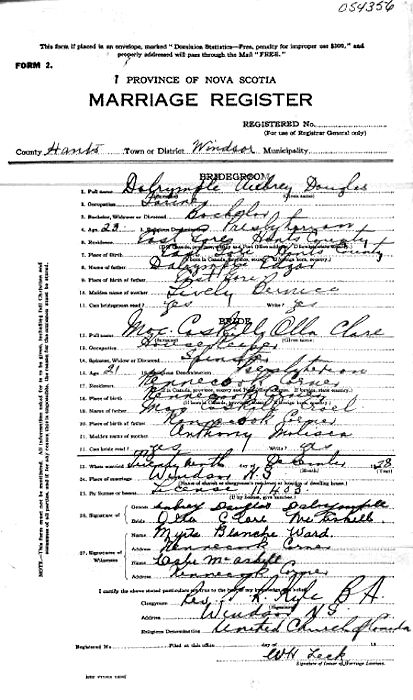 054356
This form if placed in an envelope, marked "Dominion Statistics—Free, penalty for improper use $300," and
properly addressed will pass through the Mail "FREE."
FORM 2.
PROVINCE OF NOVA SCOTIA
MARRIAGE REGISTER
REGISTERED No.
(For use of Registrar General only)
County Hants Town or District Windsor Municipality
BRIDEGROOM
1. Full name Dalrymple Aubrey Douglas
(Surname) (Given name)
2. Occupation
3. Bachelor, Widower or Divorced Bachelor
4. Age 23 5. Religious Denomination Presbyterian
6. Residence East Gore Hants County
7. Place of Birth East Gore Hants County
8. Name of father Dalrymple
9. Place of birth of father East Gore
10. Maiden name of mother Lively Bernice
11. Can bridegroom read? yes Write? yes
BRIDE
12. Full name Mac Caskill Olla Clare
(Surname) (Given name)
13. Occupation Housekeeper
14. Spinster, Widow or Divorced Spinster
15. Age 21 16. Presbyterian
17. Residence Kennecook Corner
18. Place of birth Kennecook Corner
19. Name of father Mac Caskill
20. Place of birth of father Kennecook Corner
21. Maiden name of mother Anthony Melissa
22. Can bride read? yes Write? yes
23. When married Twenty ninth day of December 1928
(Month) (Year)
24. Place of marriage Windsor N.S.
(Name of church or clergyman's residence or location of dwelling house)
25. By license or banns License 11403
(If by banns, give number)
26. Signature of Groom Aubrey Douglas Dalrymple
Bride Olla Clare McCaskill
27. Signatures of Witnesses
Name Myrta Blanche Ward.
Address Kennecook Corner
Name
Address Kennecook Corner
I certify the above stated particulars are true to the best of my knowledge and belief.
Clergyman Rev. Kyle B A.
Address Windsor N.S.
Religious Denomination United Church of Canada
Registered No. Filed at this office day of 19
W H
Signature of Issuer of Marriage Licenses.
NOTE—This form must not be mutilated. All information asked for is to be given, including full Christian and
surnames of all parties, and if for any cause this is impossible, the reason for the omission must be stated.